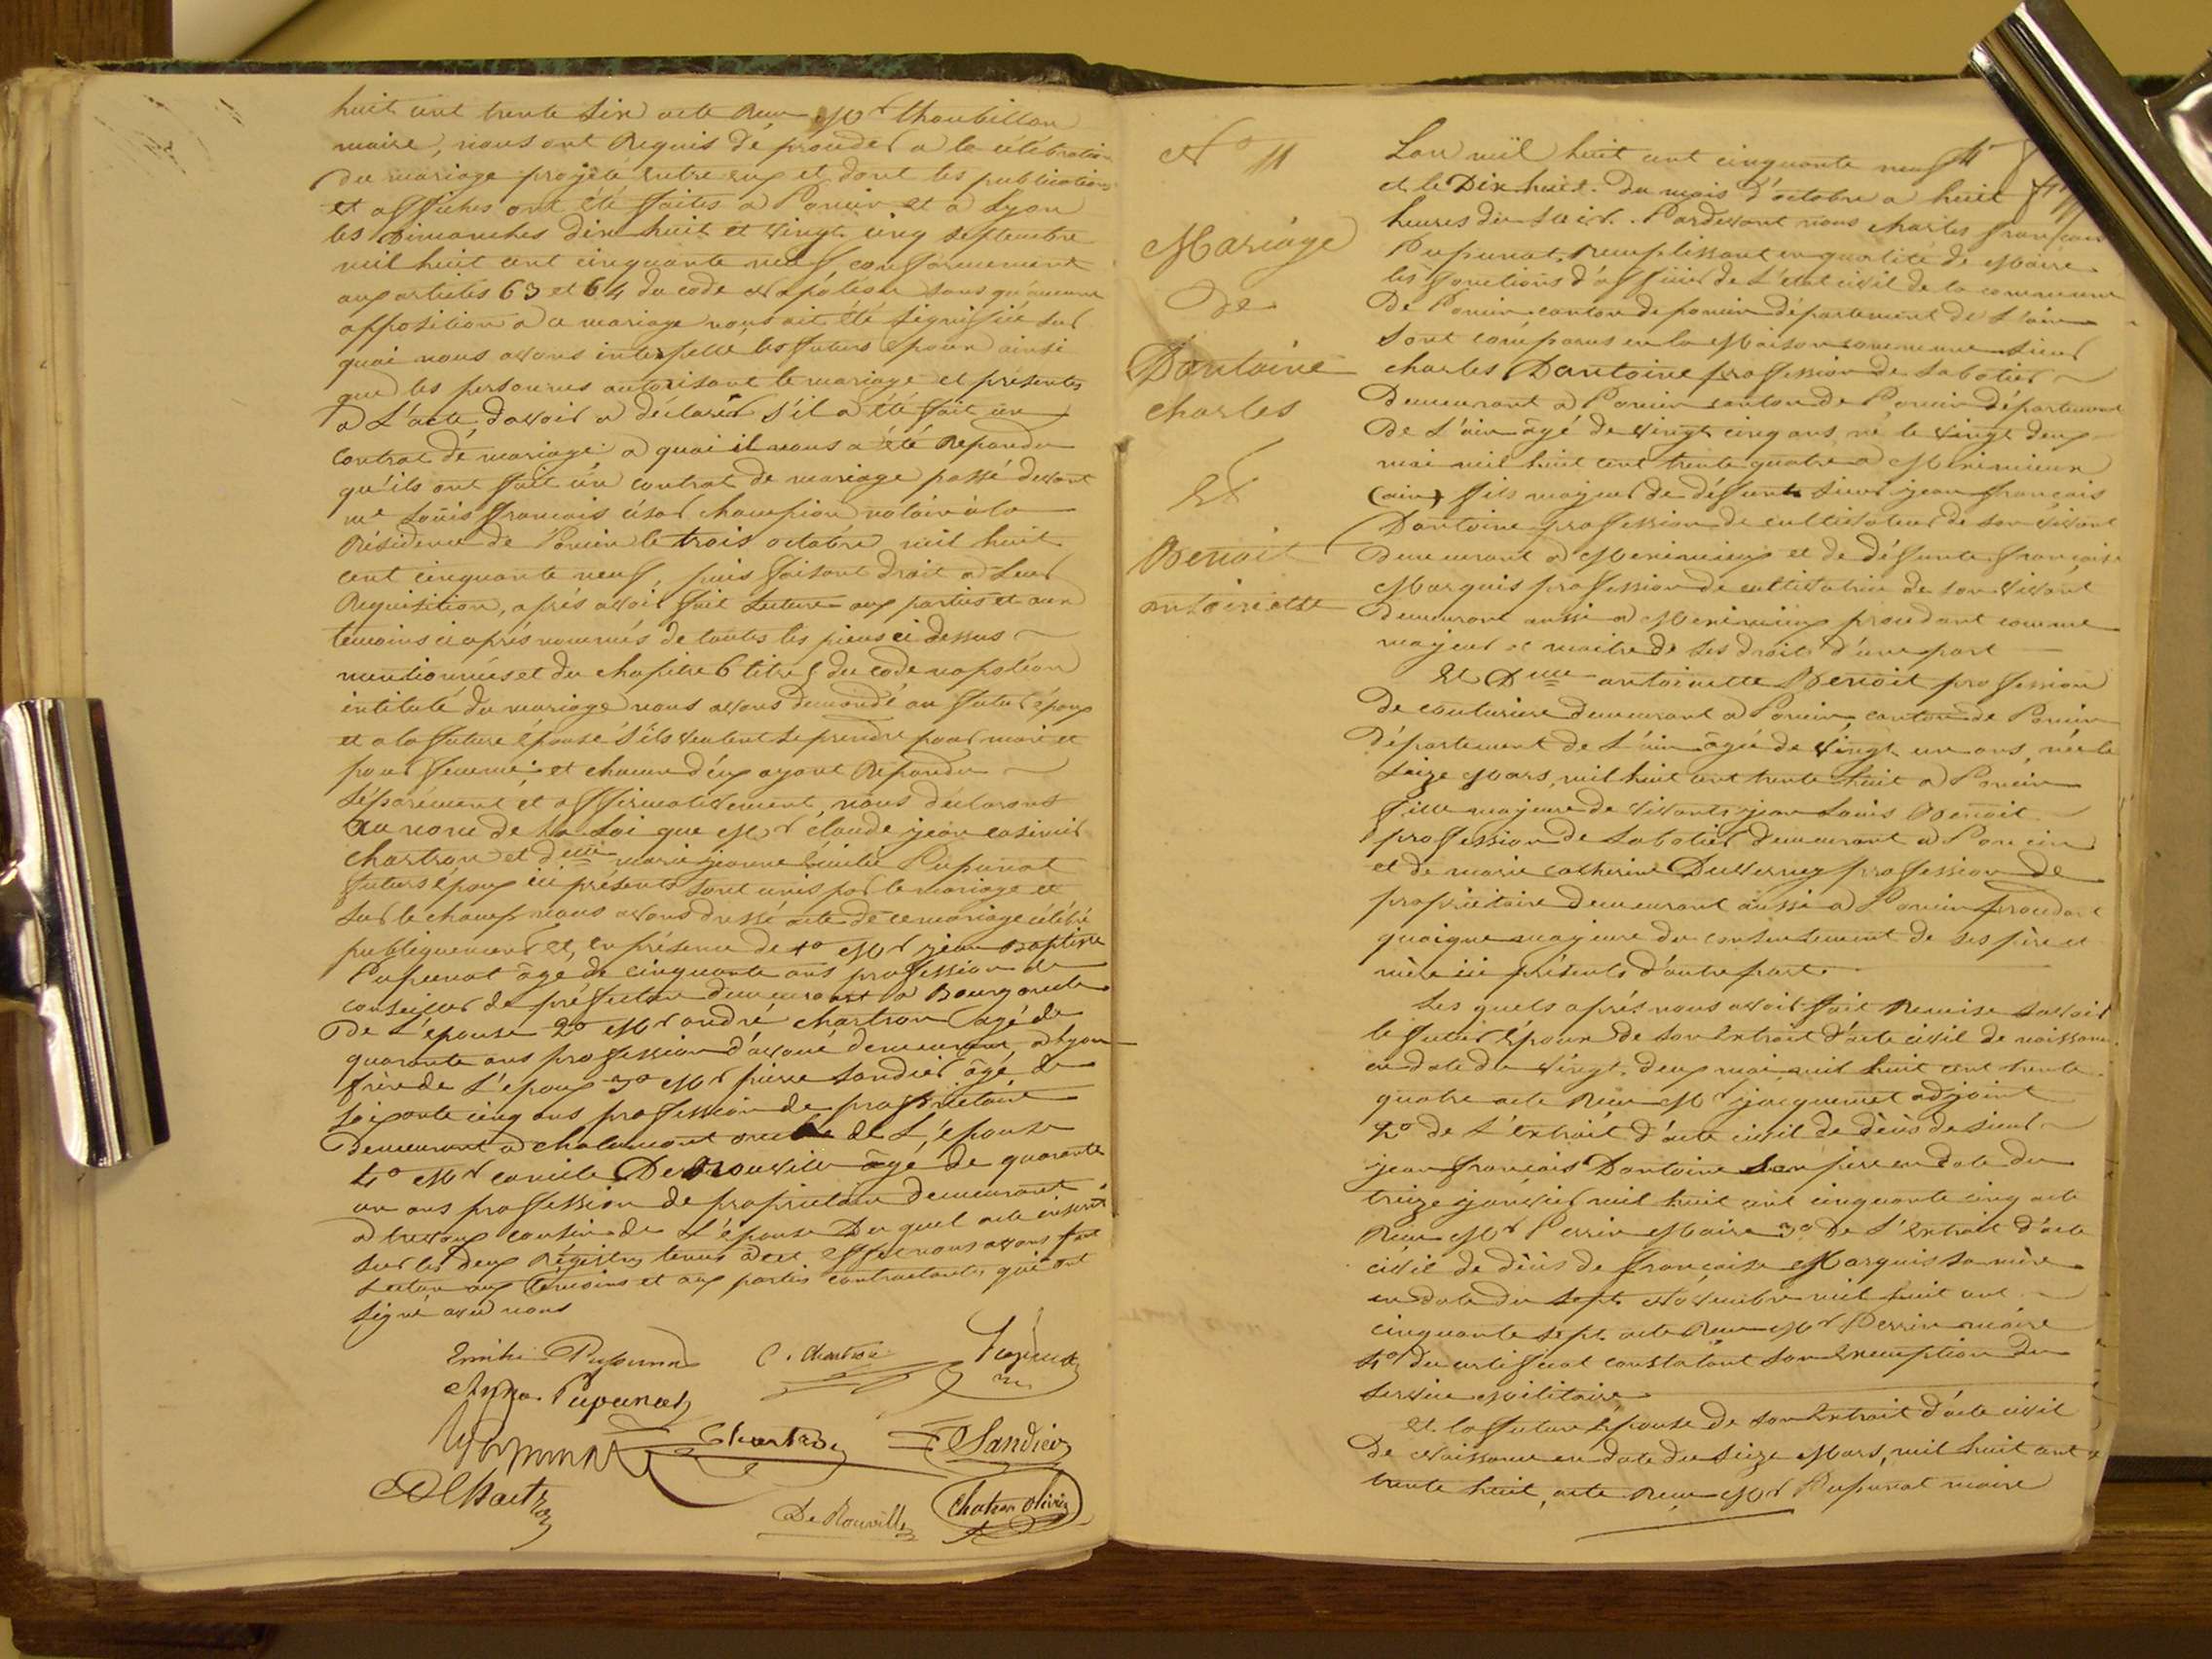 huit cent trente six acte Reçu Mr Choubillon
maire, nous ont Requis de procéder a la célébration
du mariage projeté entre eux et dont les publications
et affiches ont été faites a Poncin et a Lyon
les Dimanches dix huit et vingt cinq septembre
mil huit cent cinquante neuf conformement
aux articles 63 et 64 du code Napoléon sans qu'aucune
opposition a ce mariage nous ait été signifiée sur
quoi nous avons interpellé les futurs epoux ainsi
que les personnes autorisant le mariage et présentes
a L'acte, d'avoir a déclarer s'il a été fait un
contrat de mariage a quoi il nous a été Repondu
qu'ils ont fait un contrat de mariage passé devant
me Louis francois césar champion notaire à la
Résidence de Poncin le trois octobre mil huit
cent cinquante neuf, puis faisant droit a Leur
Requisition, aprés avoir fait Lecture aux parties et aux
temoins ci aprés nommés de toutes les pieces ci dessus
mentionnées et du chapitre 6 titre 5 du code napoléon
intitulé du mariage nous avons demandé au futur époux
et a la future épouse s'ils veulent se prendre pour mari et
pour femme et chacun d'eux ayant Repondu
séparément et affirmativement, nous déclarons
au nom de la Loi que Mr claude jean casimir
chartron et dlle marie jeanne émilie Pupunat
futurs époux ici présents sont unis par le mariage et
sur le champ nous avons dressé acte de ce mariage célébré
publiquement et, en présence de 1° Mr jean Baptiste
Pupunat âgé de cinquante ans profession de
conseiller de préfecture demeurant a Bourg oncle
De L'épouse 2° Mr andré chartron âgé de
quarante ans profession d'avoué demeurant a Lyon
frère de L'epoux 3° Mr pierre Sandier âgé de
soixante cinq ans profession de propriétaire
Demeurant a chalamont oncle de L'épouse
4° Mr camille De Rouville âgé de quarante
un ans profession de propriétaire demeurant
a trevoux cousin de L'épouse Du quel acte inscrit
sur les deux Régistres tenus a cet effet nous avons fait
Lecture aux témoins et aux parties contractantes qui ont
signé avec nous
Emilie Pupunat C. Chartron Pupunat
Anna Pupunat
Pupunat Chartron Sandier
A Chartron
De Rouville Chatron Olivier
N° 11
Mariage
De
Dantoine
charles
Et
Benoit
antoinette
Lan mil huit cent cinquante neuf
et le Dix huit Du mois d'octobre a huit
heures du soir. Pardevant nous charles francois
Pupunat, remplissant en qualité de Maire
les fonctions d'officier de L'état civil de la commune
De Poncin canton de poncin département de L'ain
sont comparus en la Maison commune sieur
charles Dantoine profession de Sabotier
Demeurant a Poncin canton de Poncin Département
De L'ain âgé de vingt cinq ans né le vingt deux
mai mil huit cent trente quatre a Meximieux
(ain) fils majeur de défunts sieur jean francais
Dantoine profession de cultivateur de son vivant
Demeurant a Meximieux et de défunte francoise
Marquis profession de cultivatrice de son vivant
Demeurant aussi a Meximieux procedant comme
majeur et maitre de ses droits d'une part
Et Dlle antoinette Benoit profession
De couturiere demeurant a Poncin canton de Poncin
Département de L'ain âgée de vingt un ans, née le
seize Mars, mil huit cent trente huit a Poncin
fille majeure de vivants jean Louis Benoit
profession de Sabotier demeurant a Poncin
et de marie catherine Duverney profession de
propriétaire demeurant aussi a Poncin procedant
quoique majeure du consentement de ses père et
mère ici présents d'autre part.
Les quels après nous avoir fait Remise savoir
le futur époux de son Extrait d'acte civil de naissance
en date du vingt deux mai mil huit cent trente
quatre acte Reçu Mr jacquemet adjoint
2° de L'Extrait d'acte civil de décès de sieur
jean francais Dantoine son pere en date du
treize janvier mil huit cent cinquante cinq acte
Reçu Mr Perrin Maire 3° de L'Extrait d'acte
civil de décès de francoise Marquis sa mère
en date du sept Novembre mil huit cent
cinquante sept acte Reçu Mr Perrin maire
4° du certificat constatant son Exemption du
service Militaire
Et la future Epouse de son Extrait d'acte civil
De Naissance en date du seize Mars, mil huit cent
trente huit, acte Reçu Mr Pupunat maire